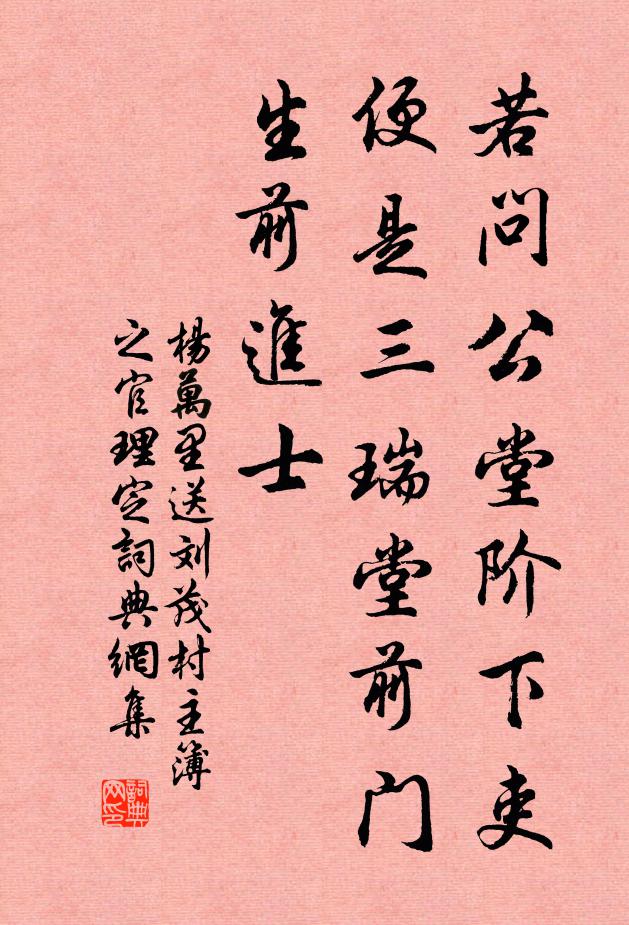 若问公堂阶下吏
便是三瑞堂前门
生前進士
楊萬里送刘茂村主簿
之官理定詞典網集
詞典网印